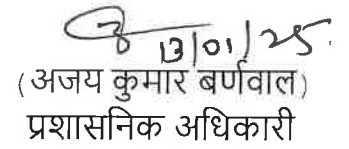 13/01/25
(अजय कुमार बर्णवाल)
प्रशासनिक अधिकारी